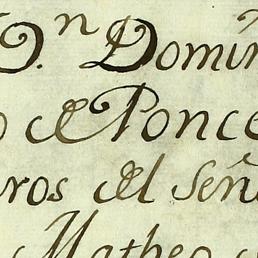 D.ⁿ Domin
o de Ponce
ros del Señ
Matheo